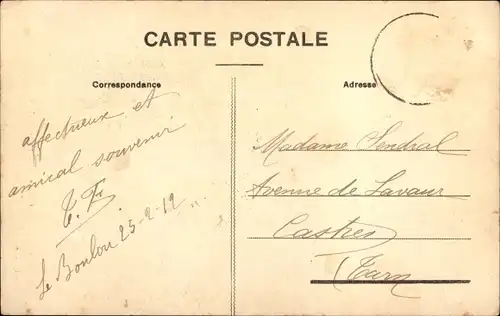 CARTE POSTALE
Correspondance
Adresse
affectueux et
amical souvenir
T. F.
Le Boulou 25-2-12
Madame Sendral
Avenue de Lavaur
Castres
Tarn